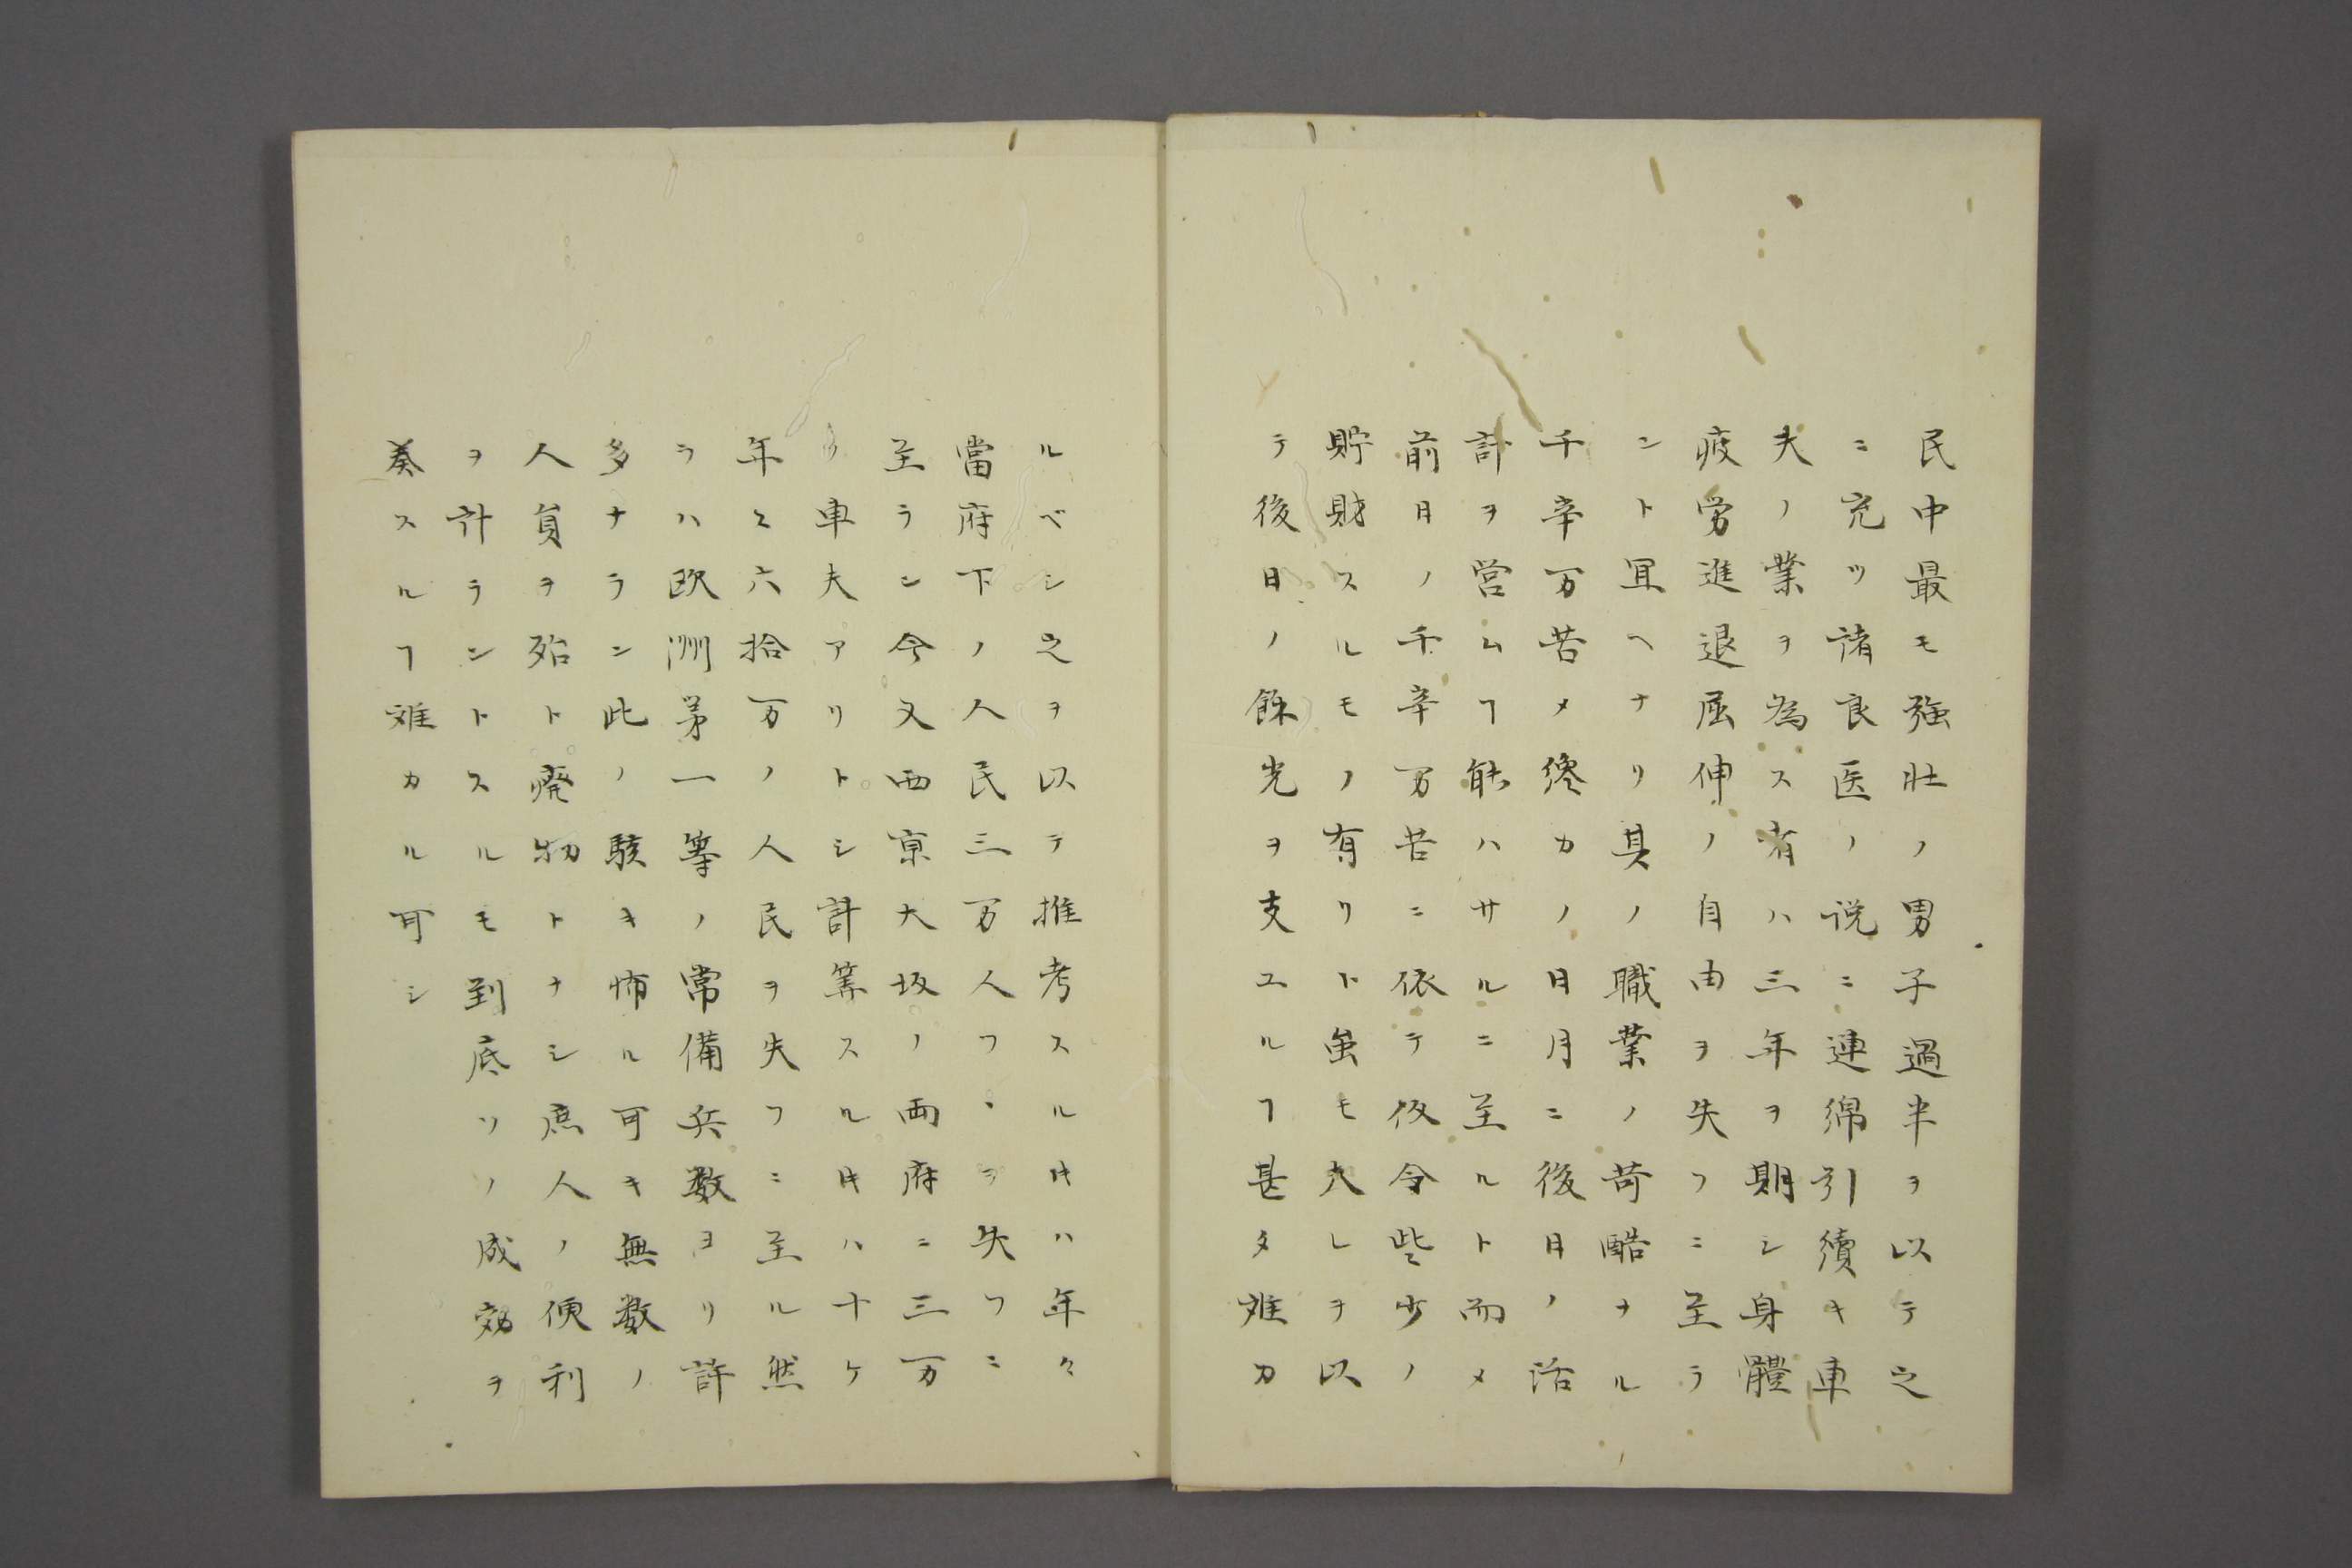 民中最モ強壮ノ男子過半ヲ以テ之
ニ充ツ諸良医ノ説ニ連綿引續キ車
夫ノ業ヲ為ス者ハ三年ヲ期シ身體
疲労進退屈伸ノ自由ヲ失フニ至ラ
ント冝ヘナリ其ノ職業ノ苛酷ナル
千辛万苦メ纔カノ日月ニ後日ノ活
計ヲ営ムヿ能ハサルニ至ルト而メ
前日ノ千辛万苦ニ依テ仮令些少ノ
貯財スルモノ有リト虽モ夫レヲ以
テ後日ノ餘光ヲ支エルヿ甚タ难カ
ルベシ之ヲ以テ推考スルㇳキハ年々
當府下ノ人民三万人フヽヲ失フニ
至ラン今又西京大坂ノ両府ニ三万
ノ車夫アリトシ計筭スルㇳキハ十ケ
年ニ六拾万ノ人民ヲ失フニ至ル然
ラハ欧洲第一等ノ常備兵数ヨリ許
多ナラン此ノ駭キ怖ル可キ無数ノ
人員ヲ殆ト廃物トナシ庶人ノ便利
ヲ計ラントスルモ到底ソノ成效ヲ
奏スルヿ难カル可シ